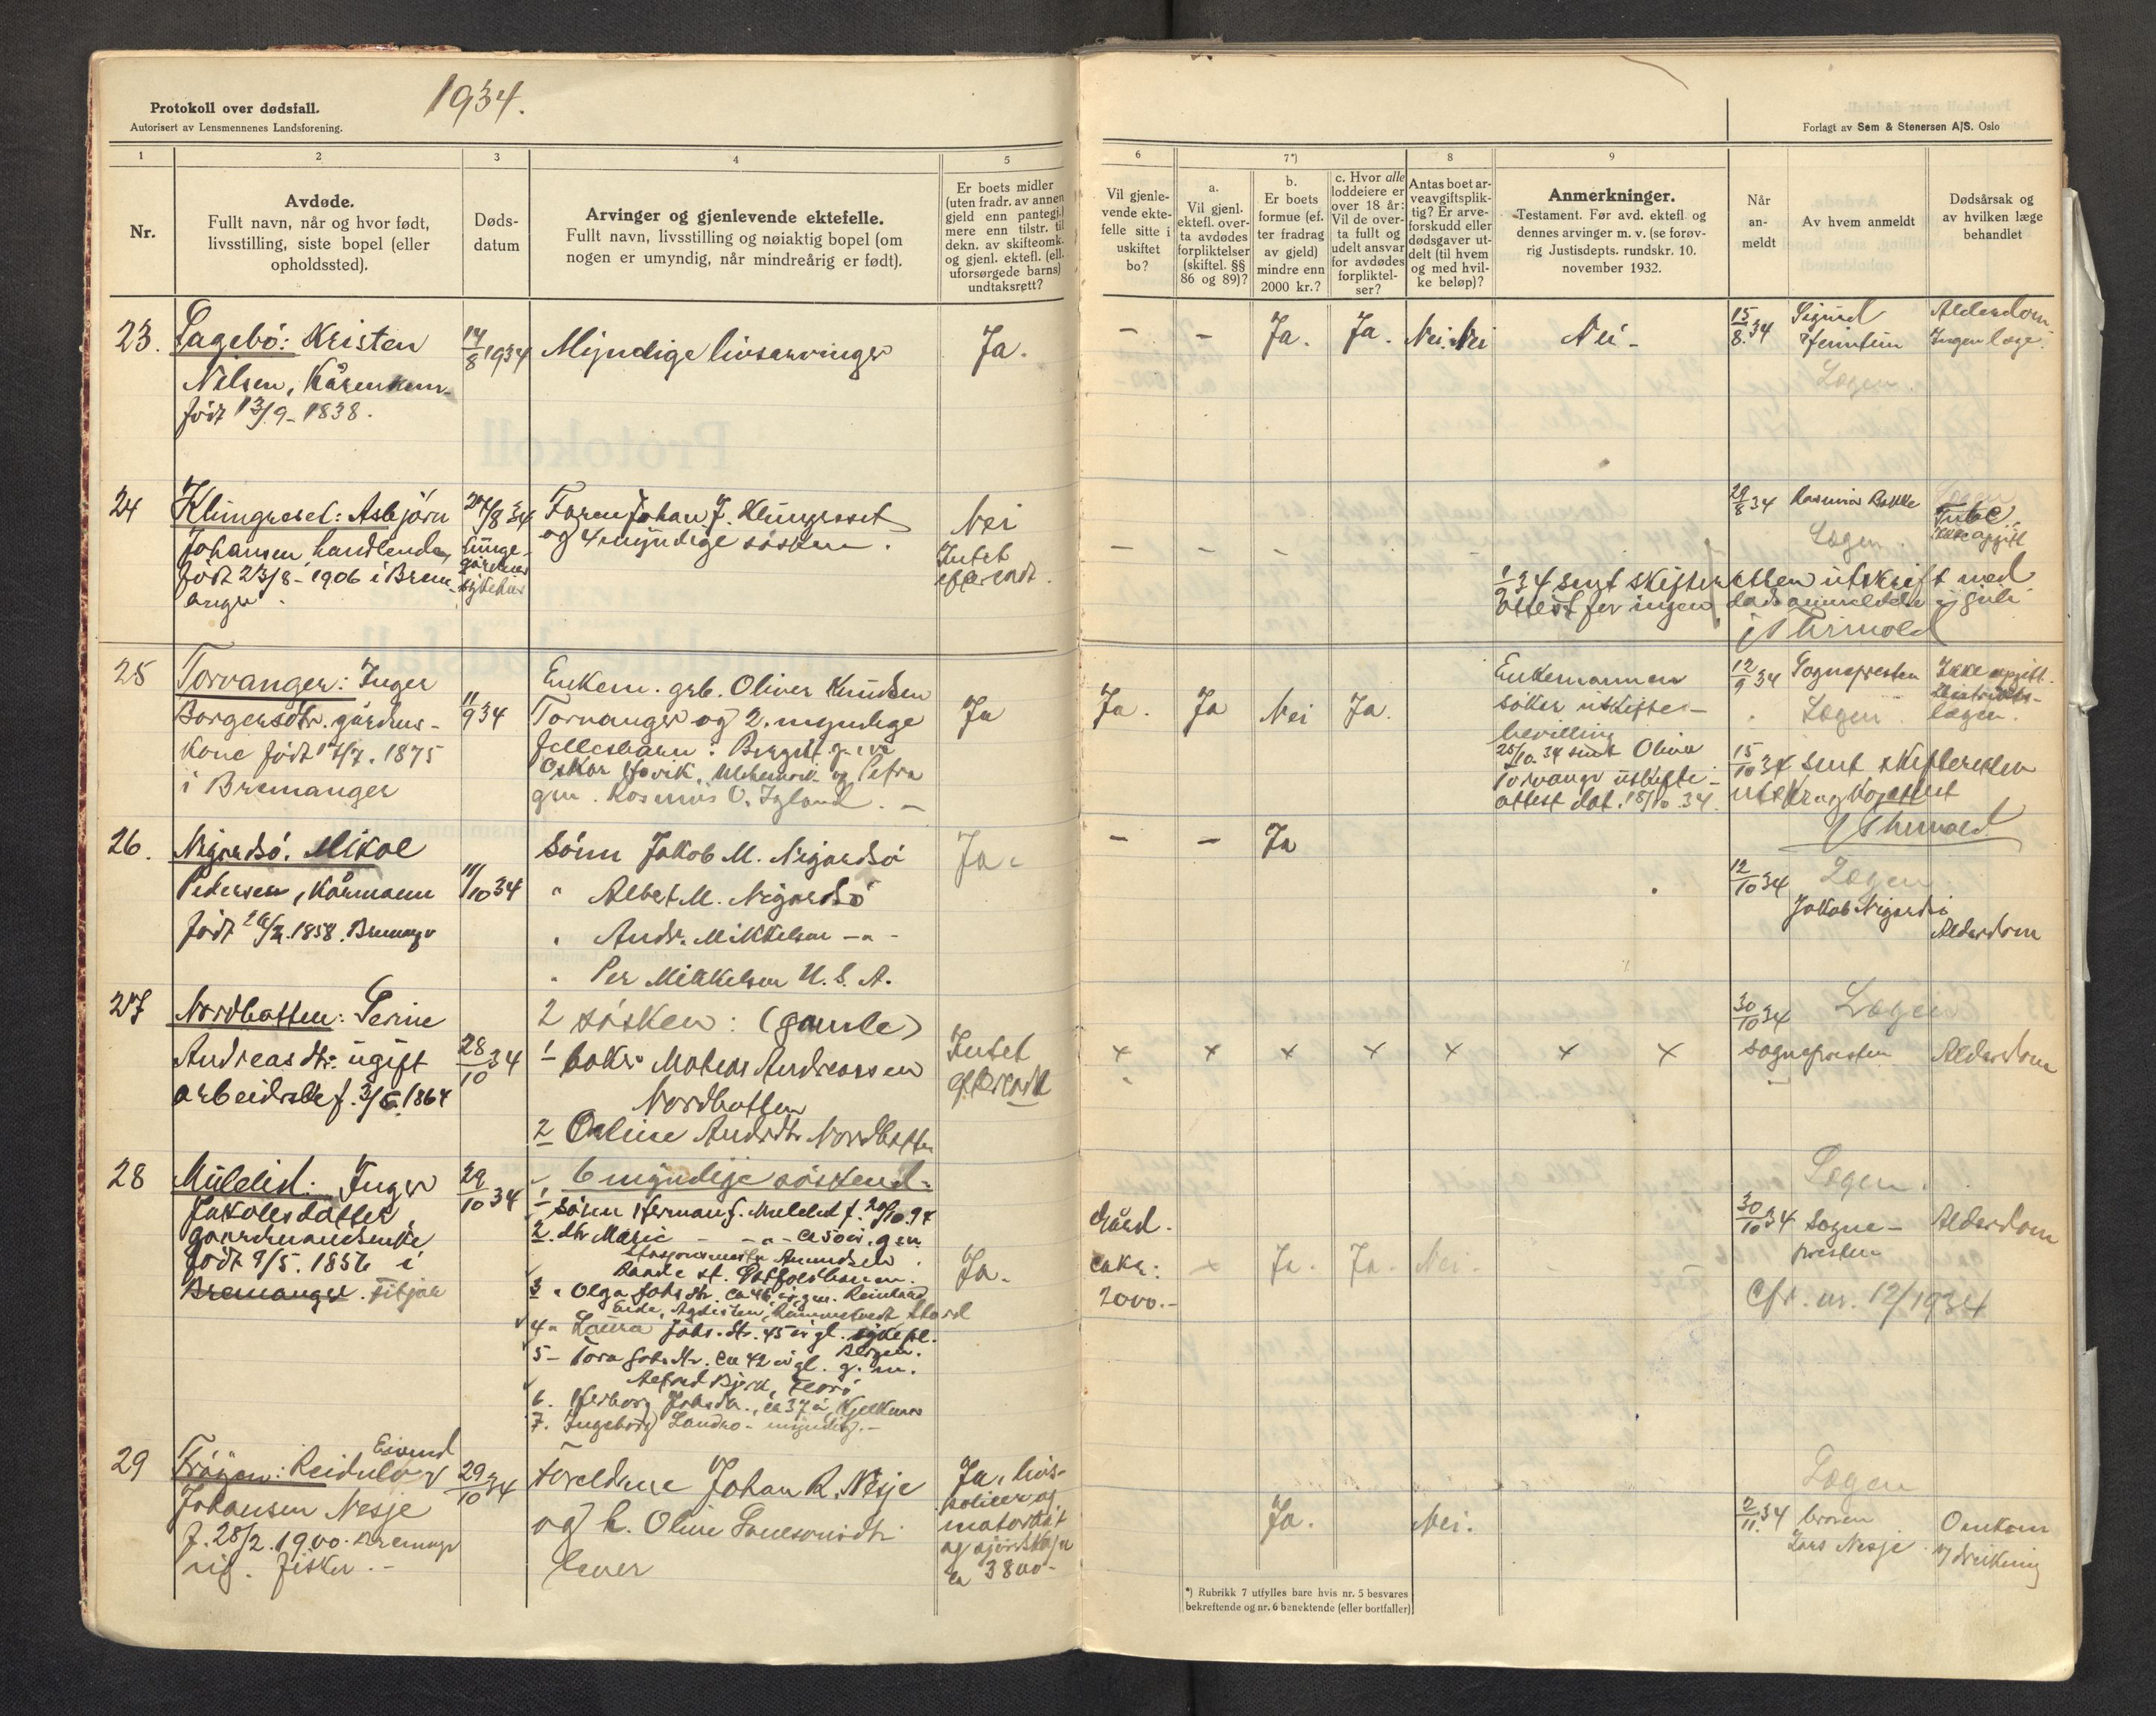 1934.
Protokoll over dødsfall.
Autorisert av Lensmennenes Landsforening.
Forlagt av Sem & Stenersen A/S. Oslo
1
2
3
4
5
6
7*)
8
9
Nr.
Avdøde.
Fullt navn, når og hvor født,
livsstilling, siste bopel (eller
opholdssted).
Døds-
datum
Arvinger og gjenlevende ektefelle.
Fullt navn, livsstilling og nøiaktig bopel (om
nogen er umyndig, når mindreårig er født).
Er boets midler
(uten fradr. av annen
gjeld enn pantegj.)
mere enn tilstr. til
dekn. av skifteomk.
og gjenl. ektefl. (ell.
uforsørgede barns)
undtaksrett?
Vil gjenle-
vende ekte-
felle sitte i
uskiftet
bo?
a.
Vil gjenl.
ektefl. over-
ta avdødes
forpliktelser
(skiftel. §§
86 og 89)?
b.
Er boets
formue (ef-
ter fradrag
av gjeld)
mindre enn
2000 kr.?
c. Hvor alle
loddeiere er
over 18 år:
Vil de over-
ta fullt og
udelt ansvar
for avdødes
forpliktel-
ser?
Antas boet ar-
veavgiftsplik-
tig? Er arve-
forskudd eller
dødsgaver ut-
delt (til hvem
og med hvil-
ke beløp)?
Anmerkninger.
Testament. Før avd. ektefl og
dennes arvinger m. v. (se forøv-
rig Justisdepts. rundskr. 10.
november 1932.
Når
an-
meldt
Av hvem anmeldt
Dødsårsak og
av hvilken læge
behandlet
23. Sagebö: Kristen
Nilsen, Kårenkem.
född 13/9-1838.
14/8 1934
Myndige livsarvinger
Ja.
- - Ja. Ja. Nei. Nei Nei -
15/8 34 Sigurd
Alderdom.
Ingen læge.
24 Klungreset: Asbjörn
Johansen handlende,
född 23/8-1906 i Brem-
anger.
27/8 34
sykehus
Faren Johan J. Klungreset
og 4 myndige søsken.
Nei
Intet
efterladt.
- - - -
29/8 34 Rasmus Bakke
Tube.
Ikke opgitt
1/9 34 sent skifteretten utskrift med
attest for ingen dødsanmeldelse i juli
25 Torvanger: Inger
Borgersdtr. gårdms-
kone född 17/7. 1875
i Bremanger
11/9 34
Enkem. grb. Oliver Knudsen
Torvanger og 2 myndige
fellesbarn: Birgit g. m
Oskar Hovik, og Petra
gm. Rasmus O. Igland. -
Ja
Ja. Ja Nei Ja.
Enkemannen
söker uskifte-
bevilling
25/10 34 sent Oliver
Torvanger uskifte-
attest dat. 18/10 34.
12/9 34 Sognepresten
Ikke opgitt.
Distrikts-
lægen.
15/10 34 sent skifteretten
26. Nigardsö. Mikal
Pedersen, Kårmann
född 26/2. 1858. Bremangr
11/10 34
Sönn Jakob M. Nigardsö
" Albert M. Nigardsö
" Andr. Mikkelsen - " -
" Per Mikkelsen U. S. A.
Ja.
- - Ja
12/10 34
Jakob Nigardsö
Alderdom
27 Nordbotten: Serine
Andreasdtr. ugift
arbeiderske f. 3/5. 1864
28/10 34
2 søsken: (gamle)
1 Mateas Andreassen
Nordbotten
2 Oeline Andrdtr Nordbotten
Intet
efterladt
x x x x x x x
30/10 34
Sognepresten
Alderdom
28 Mulelid: Inger
Jakobsdatter
gaardmandsenke
född 9/5. 1856 i
Bremanger. Fitjar
29/10 34
6 myndige søskend-
1 Sönn Herman J. Mulelid f. 20/10. 94
2. dtr Marie - - " - ca 50 år. gm.
Stasjonsmester Amundsen
Raade st. Östfoldbanen.
3 " Olga Johsdtr. ca 46 år gm. Reinhard
Eide, Stord
4 " Laura Johs. dtr. 45 år gl. sykepl.
Bergen.
5 - Tora Johsdtr. ca 42 år gl. g. m.
Alfred Bjerk,
6. Herborg Johsdtr., ca 37 år, Kjelkenes
7. Ingeborg Landro - myndig. -
Ja.
Gård.
cakr:
2000.-
x Ja. Ja. Nei. -
30/10 34 Sogne-
presten
Alderdom
Cfr. nr. 12/1934
29 Fröyen: Reidulv Eivind
Johansen Nesje
f. 28/2. 1900. Bremangr
ug. fisker. -
29/10 34
Foreldrene Johan R. Nesje
og h. Oline
lever
Ja, livs-
polise og
ca 3800-
Ja. Nei.
2/11 34 broren
Lars Nesje
Omkom
v/ drukning
*) Rubrikk 7 utfylles bare hvis nr. 5 besvares
bekreftende og nr. 6 benektende (eller bortfaller)